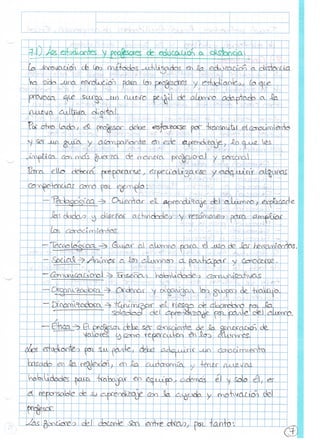 7.1) Los estudiantes y profesores de educación a distancia.
La innovación de los métodos utilizados en la educación a distancia
ha sido una evolución para los profesores y estudiantes, lo que
provoca que surga un nuevo perfil de alumno adaptado a la
nueva cultura digital.
Por otro lado, el profesor debe esforzarse por transmitir el conocimiento
y ser un guía y acompañante en este aprendizaje, lo que les
implica con más fuerza de manera profesional y personal.
Para ello deberá prepararse, especializarse y adquirir algunas
competencias como por ejemplo:
- Pedagógica → Orientar el aprendizaje del alumno, explicarle
las dudas y diseñar actividades y resúmenes para ampliar
los conocimientos.
- Tecnológica → Guiar al alumno para el uso de las herramientas.
- Social → Animar a los alumnos a participar y conocerse.
- Comunicacional → Enseñar habilidades comunicativas.
- Organizadora → Ordenar y organizar los grupos de trabajo.
- Dinamizadora → Minimizar el riesgo de abandono por la
soledad del aprendizaje por parte del alumno.
- Ética → El profesor debe ser consciente de la generación de
valores y como repercuten en los alumnos.
Los estudiantes, por su parte, debe adquirir un conocimiento
basado en la reflexión, en la autonomía y tener nuevas
habilidades para trabajar en equipo, además él y solo él, es
el responsable de su aprendizaje con la ayuda y motivación del
profesor.
Las funciones del docente son entre otras, por tanto:
7